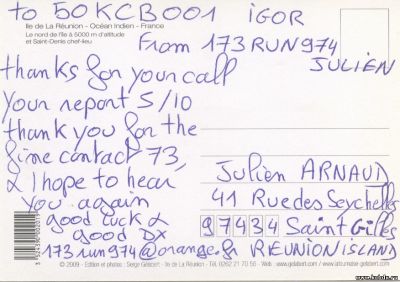 to 50KCB001 IGOR
Ile de La Réunion - Océan Indien - France
Le nord de l'île à 5000 m d'altitude
et Saint-Denis chef-lieu
From 173RUN974
JULIEN
thanks for your call
your report 5/10
thank you for the
fine contact 73,
& I hope to hear
you again
good luck &
good DX
173run974@orange.fr
Julien ARNAUD
41 Rue des Seychelles
97434 Saint Gilles
REUNION ISLAND
© 2009 - Edition et photos : Serge Gélabert - Ile de La Réunion - Tél. 0262 21 70 55 - Web : www.gelabert.com